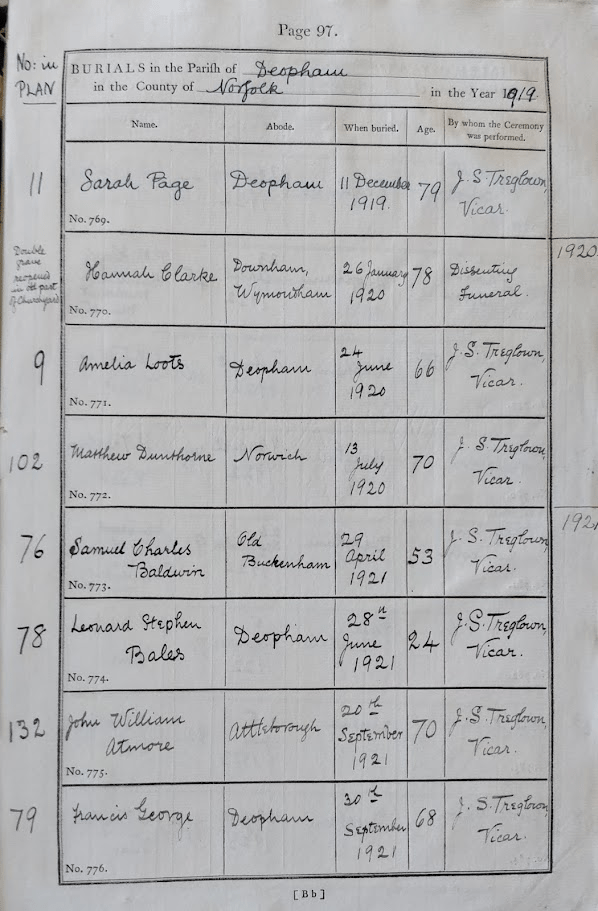 Page 97.
No: in
PLAN
BURIALS in the Parish of Deopham
in the County of Norfolk in the Year 1919
Name. Abode. When buried. Age. By whom the Ceremony
was performed.
11 Sarah Page Deopham 11 December 79 J. S. Treglown,
1919. Vicar.
No. 769.
1920
Double
grave
reopened
in old part
of Churchyard
Hannah Clarke Downham, 26 January 78 Dissenting
Wymondham 1920 Funeral.
No. 770.
9 Amelia Loots Deopham 24 June 66 J. S. Treglown,
1920 Vicar.
No. 771.
102 Matthew Dunthorne Norwich 13 July 70 J. S. Treglown,
1920 Vicar.
No. 772.
1921
76 Samuel Charles Old 29 April 53 J. S. Treglown,
Baldwin Buckenham 1921 Vicar.
No. 773.
78 Leonard Stephen Deopham 28th June 24 J. S. Treglown,
Bales 1921 Vicar.
No. 774.
132 John William Attleborough 20th September 70 J. S. Treglown,
Atmore 1921 Vicar.
No. 775.
79 Francis George Deopham 30th September 68 J. S. Treglown,
1921 Vicar.
No. 776.
[ B b ]